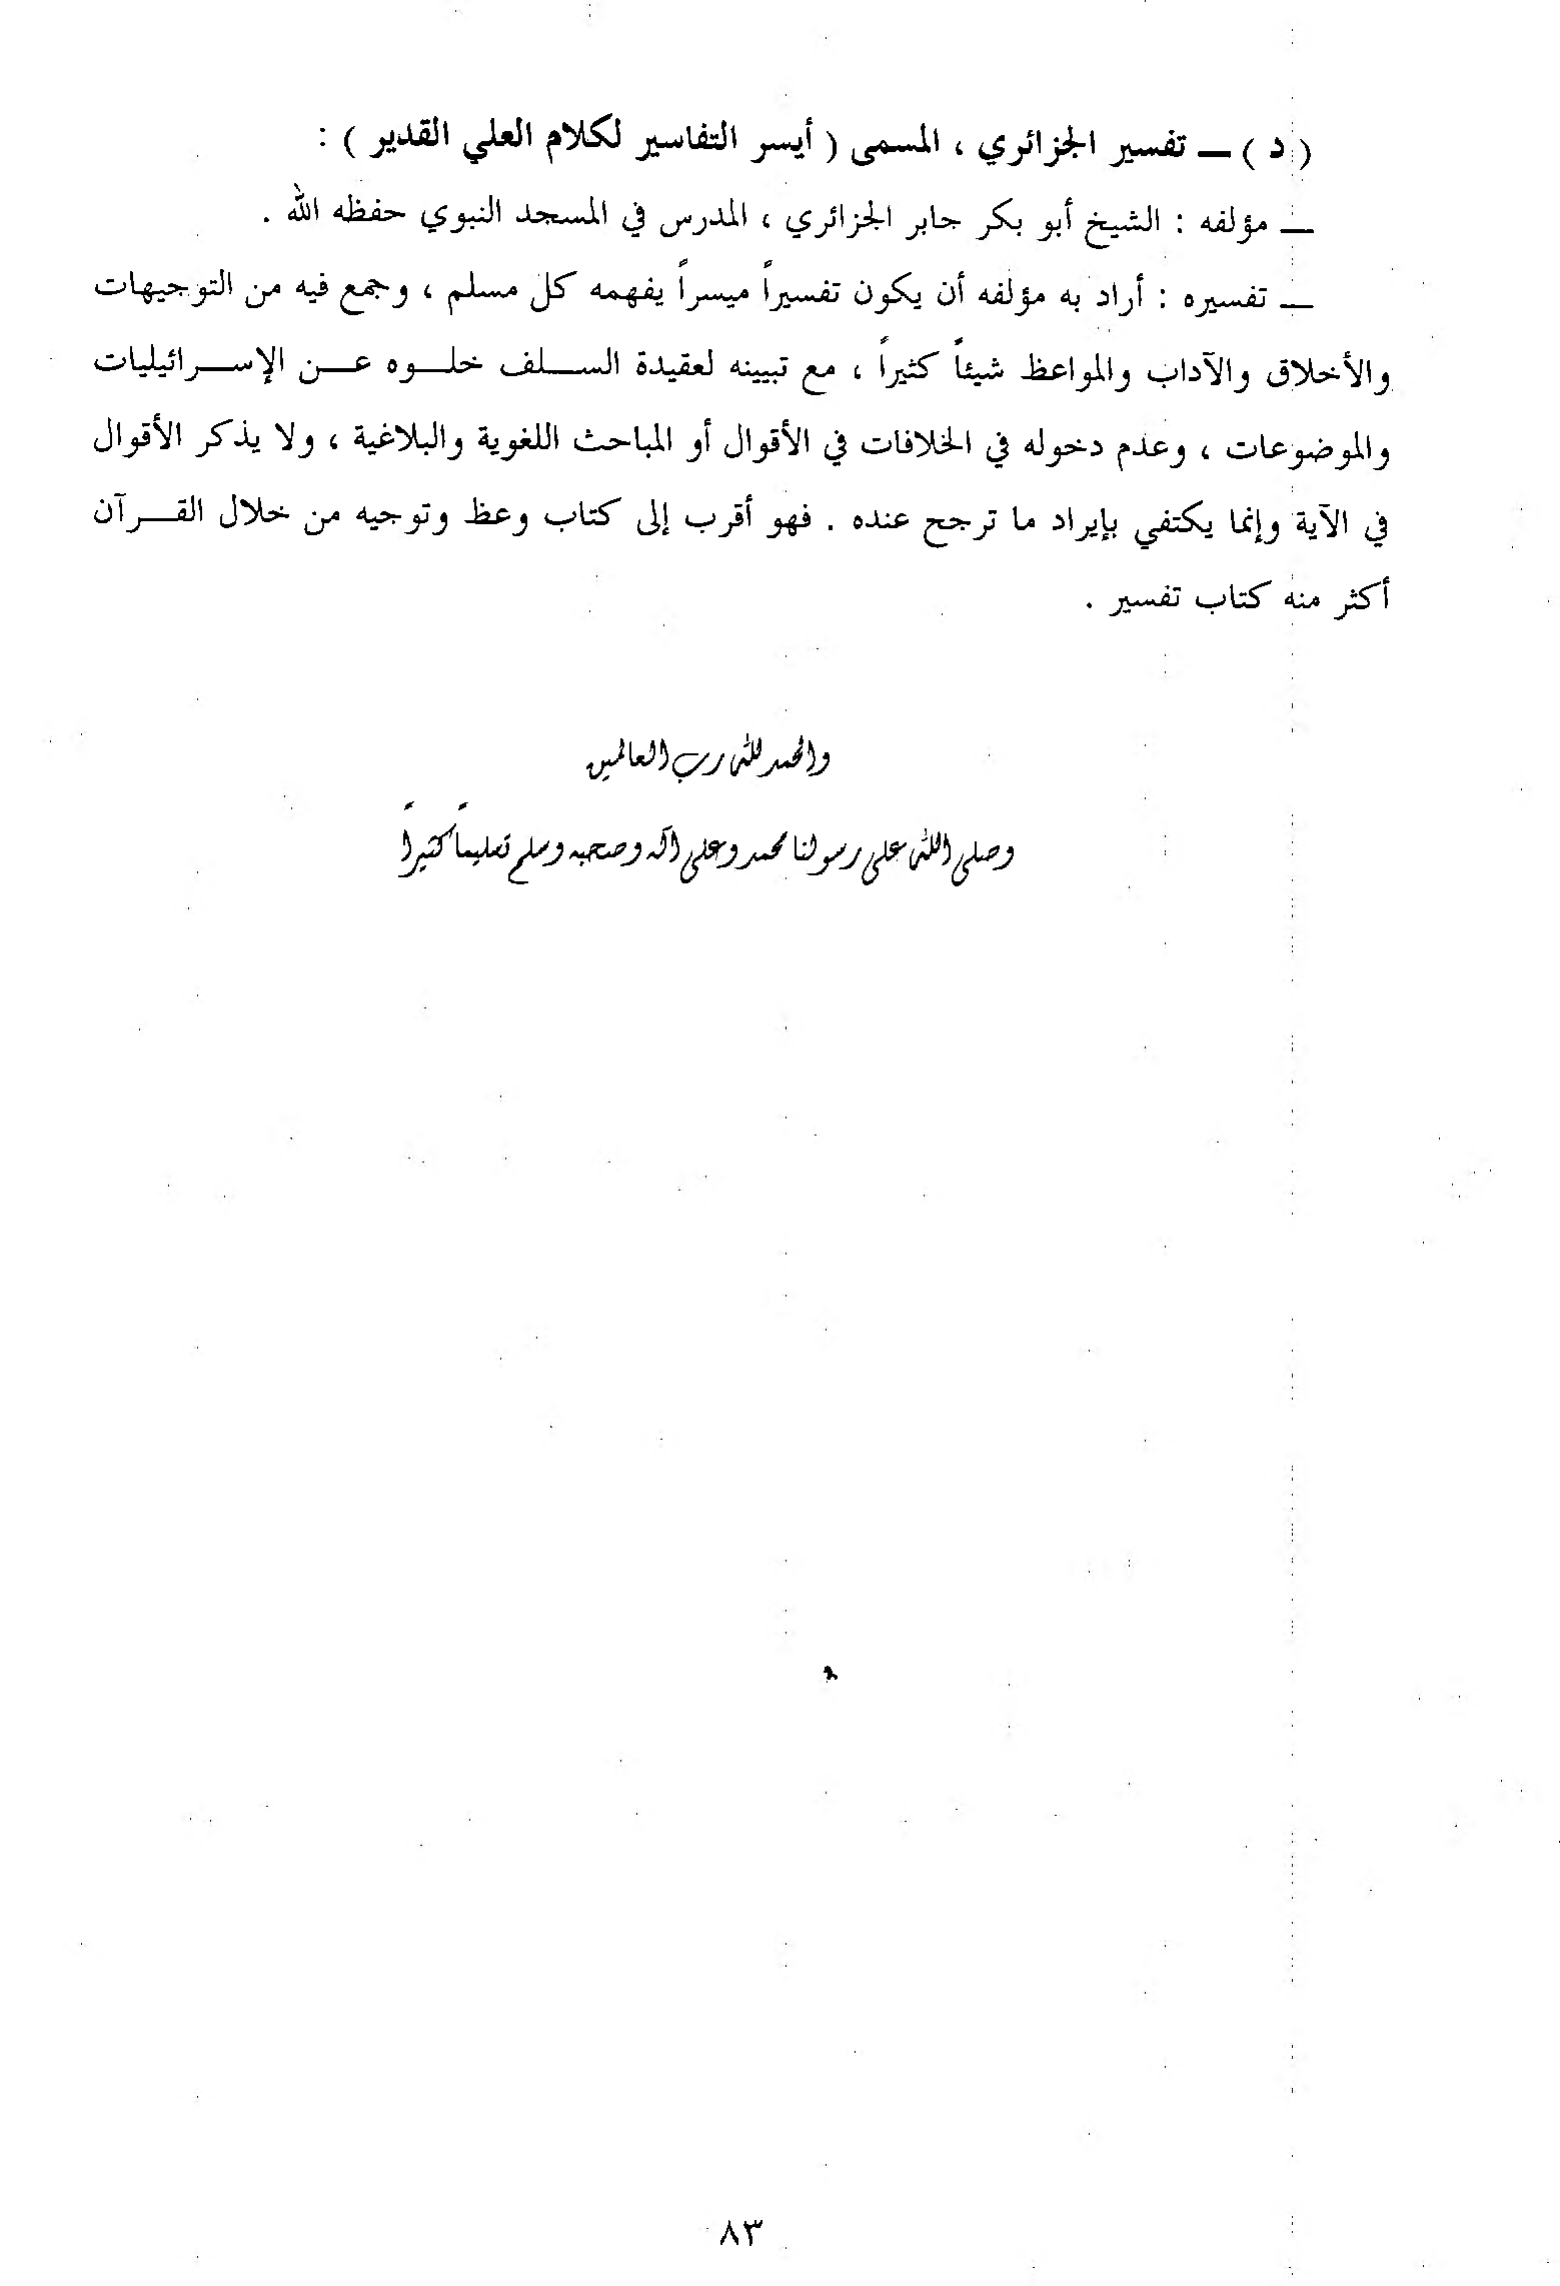 ( د ) — تفسير الجزائري ، المسمى ( أيسر التفاسير لكلام العلي القدير ) :
— مؤلفه : الشيخ أبو بكر جابر الجزائري ، المدرس في المسجد النبوي حفظه الله .
— تفسيره : أراد به مؤلفه أن يكون تفسيراً ميسراً يفهمه كل مسلم ، وجمع فيه من التوجيهات
والأخلاق والآداب والمواعظ شيئاً كثيراً ، مع تبيينه لعقيدة الســلف خلــوه عــن الإســرائيليات
والموضوعات ، وعدم دخوله في الخلافات في الأقوال أو المباحث اللغوية والبلاغية ، ولا يذكر الأقوال
في الآية وإنما يكتفي بإيراد ما ترجح عنده . فهو أقرب إلى كتاب وعظ وتوجيه من خلال القــرآن
أكثر منه كتاب تفسير .
والحمد لله رب العالمين
وصلى الله على رسولنا محمد وعلى آله وصحبه وسلم تسليماً كثيراً
٨٣